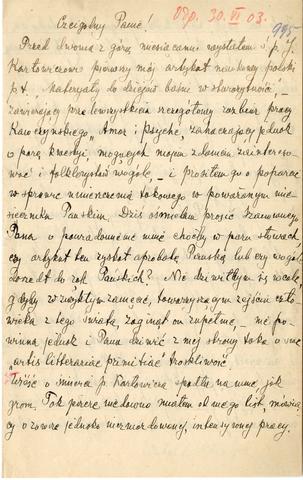 Odp. 30. VI 03.
995
Czcigodny Panie!
Przed dwoma z górą miesiącami wysłałem ś. p. J.
Karłowiczowi pierwszy mój artykuł naukowy polski
p.t. Materyały do dziejów baśni w starożytności, –
zawierający przedewszystkiem szczegółowy rozbiór pracy
Kawczyńskiego „Amor i Psyche", zahaczający jednak
o parę kwestyj, mogących mojem zdaniem zaintereso-
wać i folklorystów wogóle, – i prosiłem go o poparcie
w sprawie umieszczenia takowego w poważanym mie-
sięczniku Pańskim. Dziś ośmielam prosić Szanownego
Pana o powiadomienie mnie choćby w paru słowach
czy artykuł ten zyskał aprobatę Pańską lub czy wogóle
doszedł do rąk Pańskich? Nie dziwiłbym się wcale,
gdyby w zwykłym zamęcie, towarzyszącym zejściu czło-
wieka z tego świata, zaginął on zupełnie, – nie po-
winna jednak i Pana dziwić z mej strony taka o me
„artis litterariae primitiae" troskliwość.
Wieść o śmierci p. Karłowicza spadła na mnie jak
grom. Tak przecie niedawno miałem od niego list, mówią-
cy o zawsze jednako niezmordowanej, intensywnej pracy.